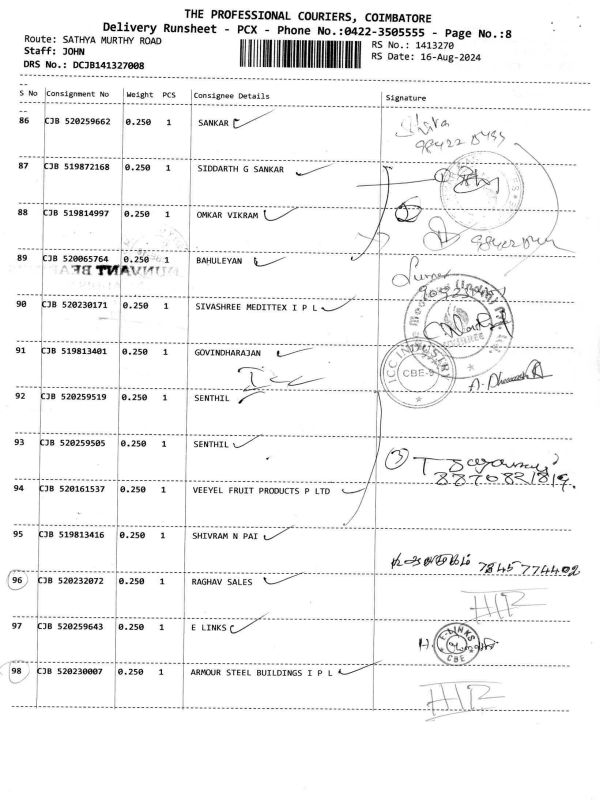 THE PROFESSIONAL COURIERS, COIMBATORE
Delivery Runsheet - PCX - Phone No.:0422-3505555 - Page No.:8
Route: SATHYA MURTHY ROAD
RS No.: 1413270
Staff: JOHN
RS Date: 16-Aug-2024
DRS No.: DCJB141327008
S No Consignment No Weight PCS Consignee Details Signature
86 CJB 520259662 0.250 1 SANKAR
87 CJB 519872168 0.250 1 SIDDARTH G SANKAR
88 CJB 519814997 0.250 1 OMKAR VIKRAM
89 CJB 520065764 0.250 1 BAHULEYAN
90 CJB 520230171 0.250 1 SIVASHREE MEDITTEX I P L
91 CJB 519813401 0.250 1 GOVINDHARAJAN
Icc
ICC INDUSTRY
CBE-9
92 CJB 520259519 0.250 1 SENTHIL
93 CJB 520259505 0.250 1 SENTHIL
3
8870821819.
94 CJB 520161537 0.250 1 VEEYEL FRUIT PRODUCTS P LTD
95 CJB 519813416 0.250 1 SHIVRAM N PAI
7845774402
96 CJB 520232072 0.250 1 RAGHAV SALES
97 CJB 520259643 0.250 1 E LINKS
H.
LINKS
CBE
98 CJB 520230007 0.250 1 ARMOUR STEEL BUILDINGS I P L